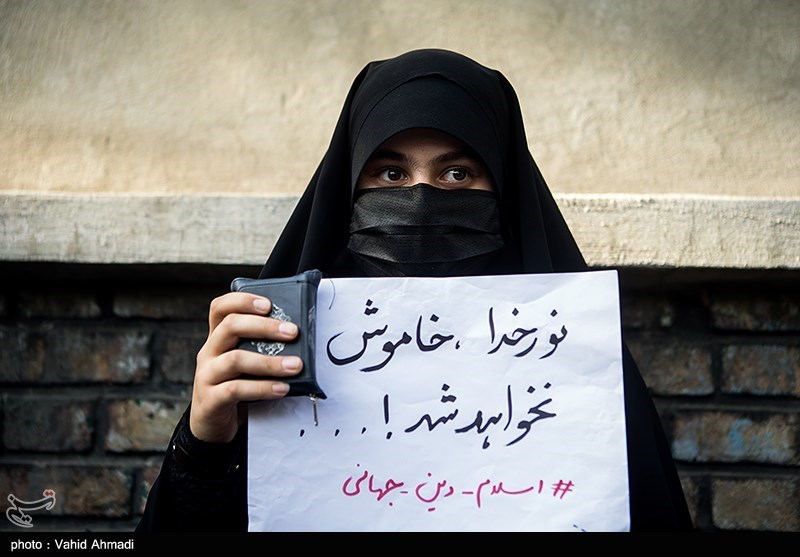 نور خدا ، خاموش
نخواهد شد ! . . . .
#اسلام_دین_جهانی
photo : Vahid Ahmadi